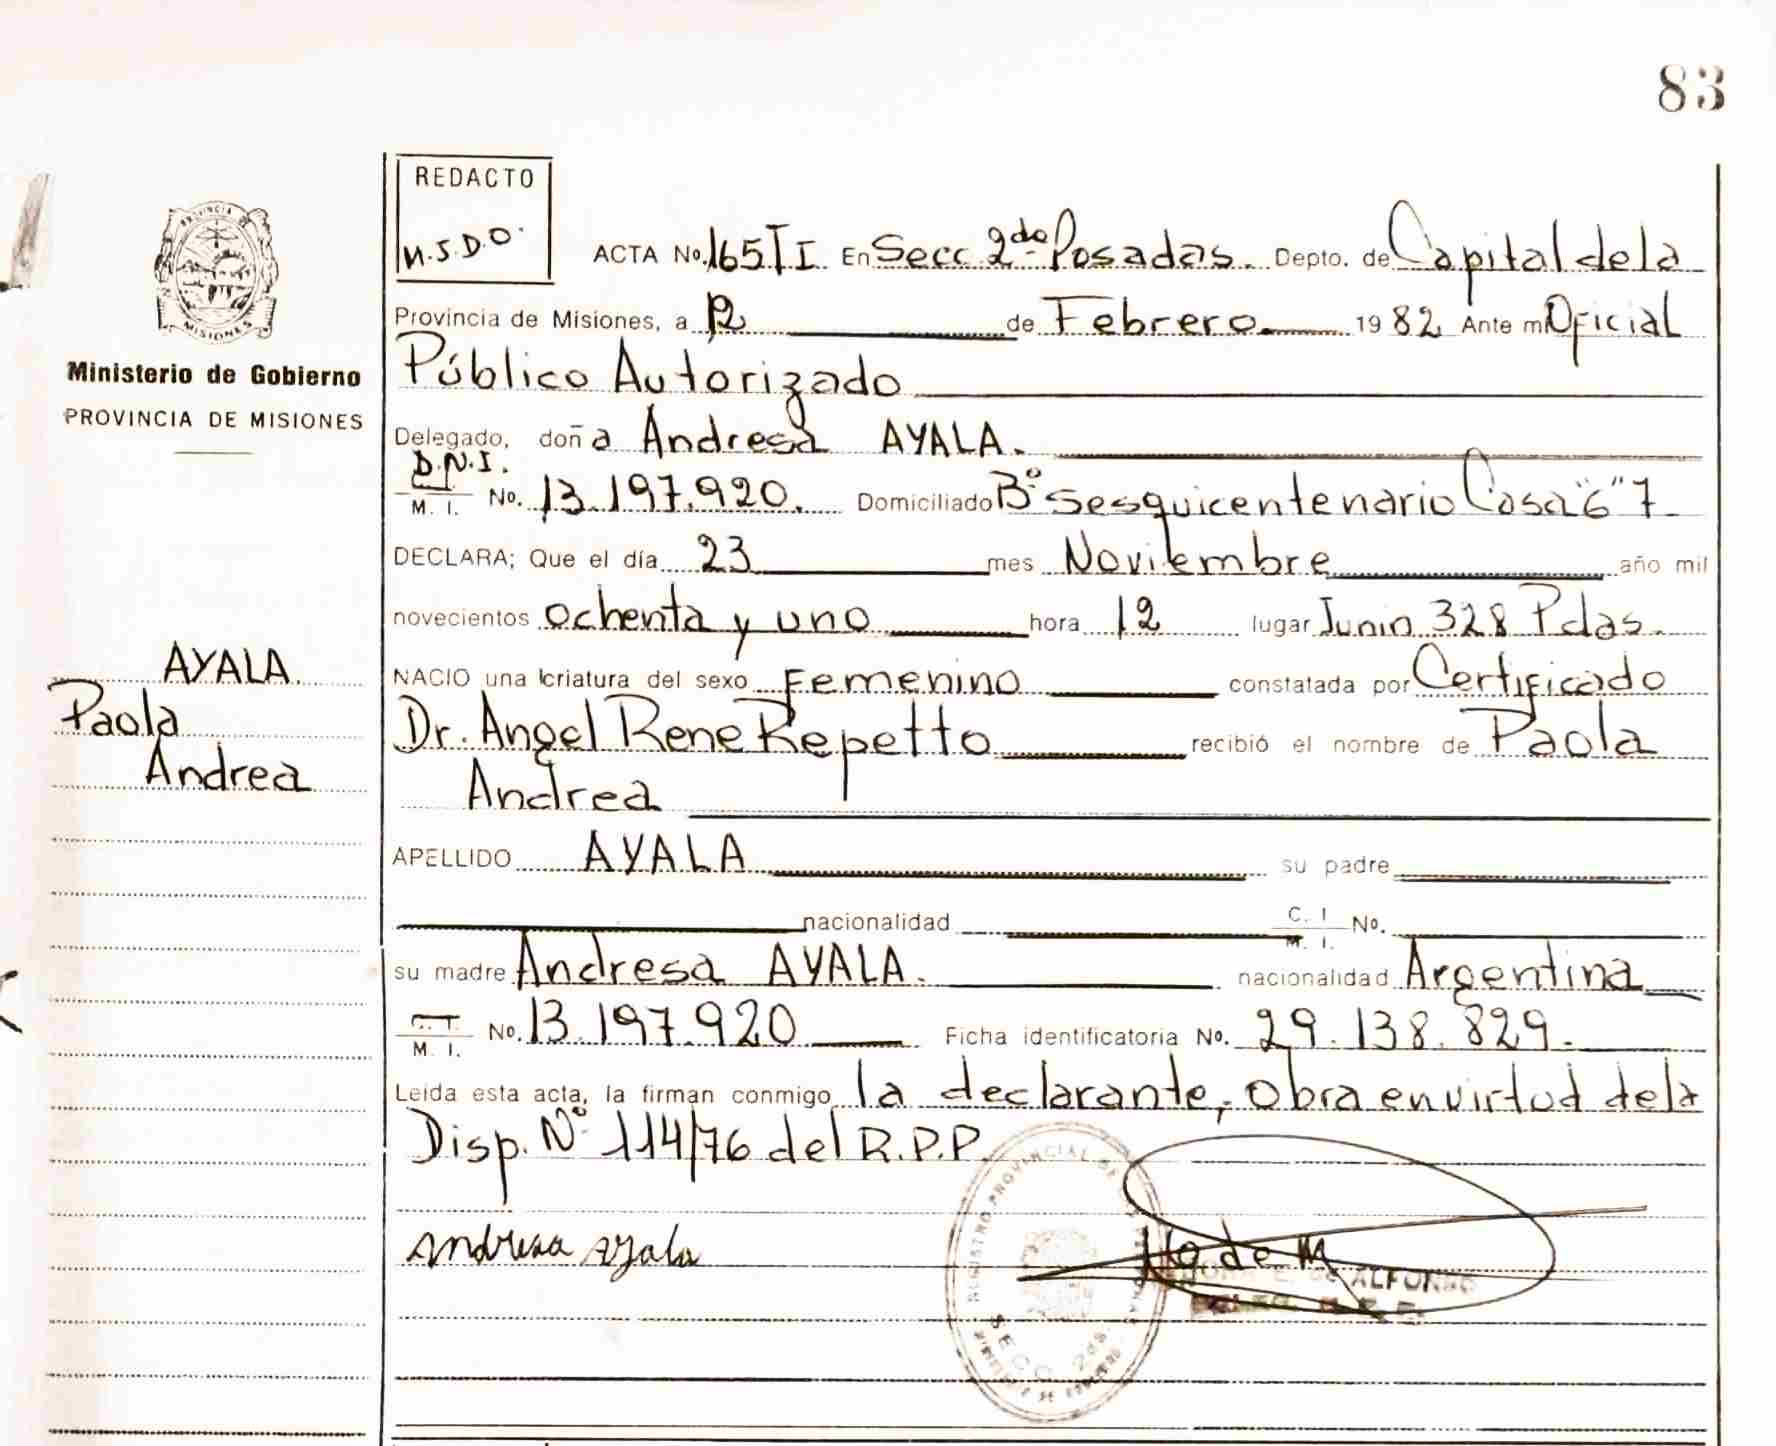 83
REDACTO
M.S.D.O.
ACTA No. 165 T I En Secc. 2da Posadas. Depto. de Capital de la
Provincia de Misiones, a 12 de Febrero 1982 Ante mi Oficial
Público Autorizado
Delegado, doña Andresa AYALA.
D.N.I.
M. I. No. 13.197.920. Domiciliado Bº Sesquicentenario Casa "6" 7
DECLARA; Que el día 23 mes Noviembre año mil
novecientos ochenta y uno hora 12 lugar Junin 328 Pdas.
NACIO una criatura del sexo Femenino constatada por Certificado
Dr. Angel Rene Repetto recibió el nombre de Paola
Andrea
APELLIDO AYALA su padre
nacionalidad C. I. M. I. No.
su madre Andresa AYALA. nacionalidad Argentina
C. I. M. I. No. 13.197.920 Ficha identificatoria No. 29.138.829.
Leída esta acta, la firman conmigo la declarante, obra en virtud de la
Disp. Nº 114/76 del R.P.P.
Andresa Ayala
DE ALFONSO
REGISTRO PROVINCIAL DE LAS PERSONAS
SECC. 2da.
PROVINCIA DE
MISIONES
Ministerio de Gobierno
PROVINCIA DE MISIONES
AYALA
Paola
Andrea